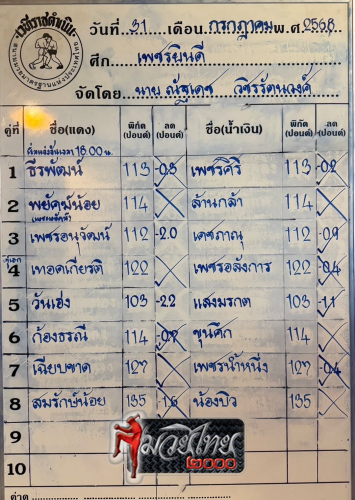 เวทีราชดำเนิน
สนามมวยมาตรฐานแห่งประเทศไทย
วันที่ 31 เดือน กรกฎาคม พ.ศ. 2568
ศึก เพชรยินดี
จัดโดย นาย ณัฐเดช วชิรรัตนวงศ์
คู่ที่ ชื่อ(แดง) พิกัด (ปอนด์) ลด (ปอนด์) ชื่อ(น้ำเงิน) พิกัด (ปอนด์) ลด (ปอนด์)
1 ธีรพัฒน์ 113 -0.3 เพชรศิริ 113 -0.2
2 พยัคฆ์น้อย 114 ล้านกล้า 114
3 เพชรอนุวัฒน์ 112 -2.0 เดชภาณุ 112 -0.9
คู่เอก
4 เทอดเกียรติ 122 เพชรอลังการ 122 -0.4
5 วันเฮง 103 -2.2 แสงมรกต 103 -1.1
6 ก้องธรณี 114 ขุนศึก 114
7 เฉียบขาด 127 เพชรน้ำหนึ่ง 127 -0.4
8 สมรักษ์น้อย 135 -1.6 น้องบิว 135
9
10
มวยไทย
2000